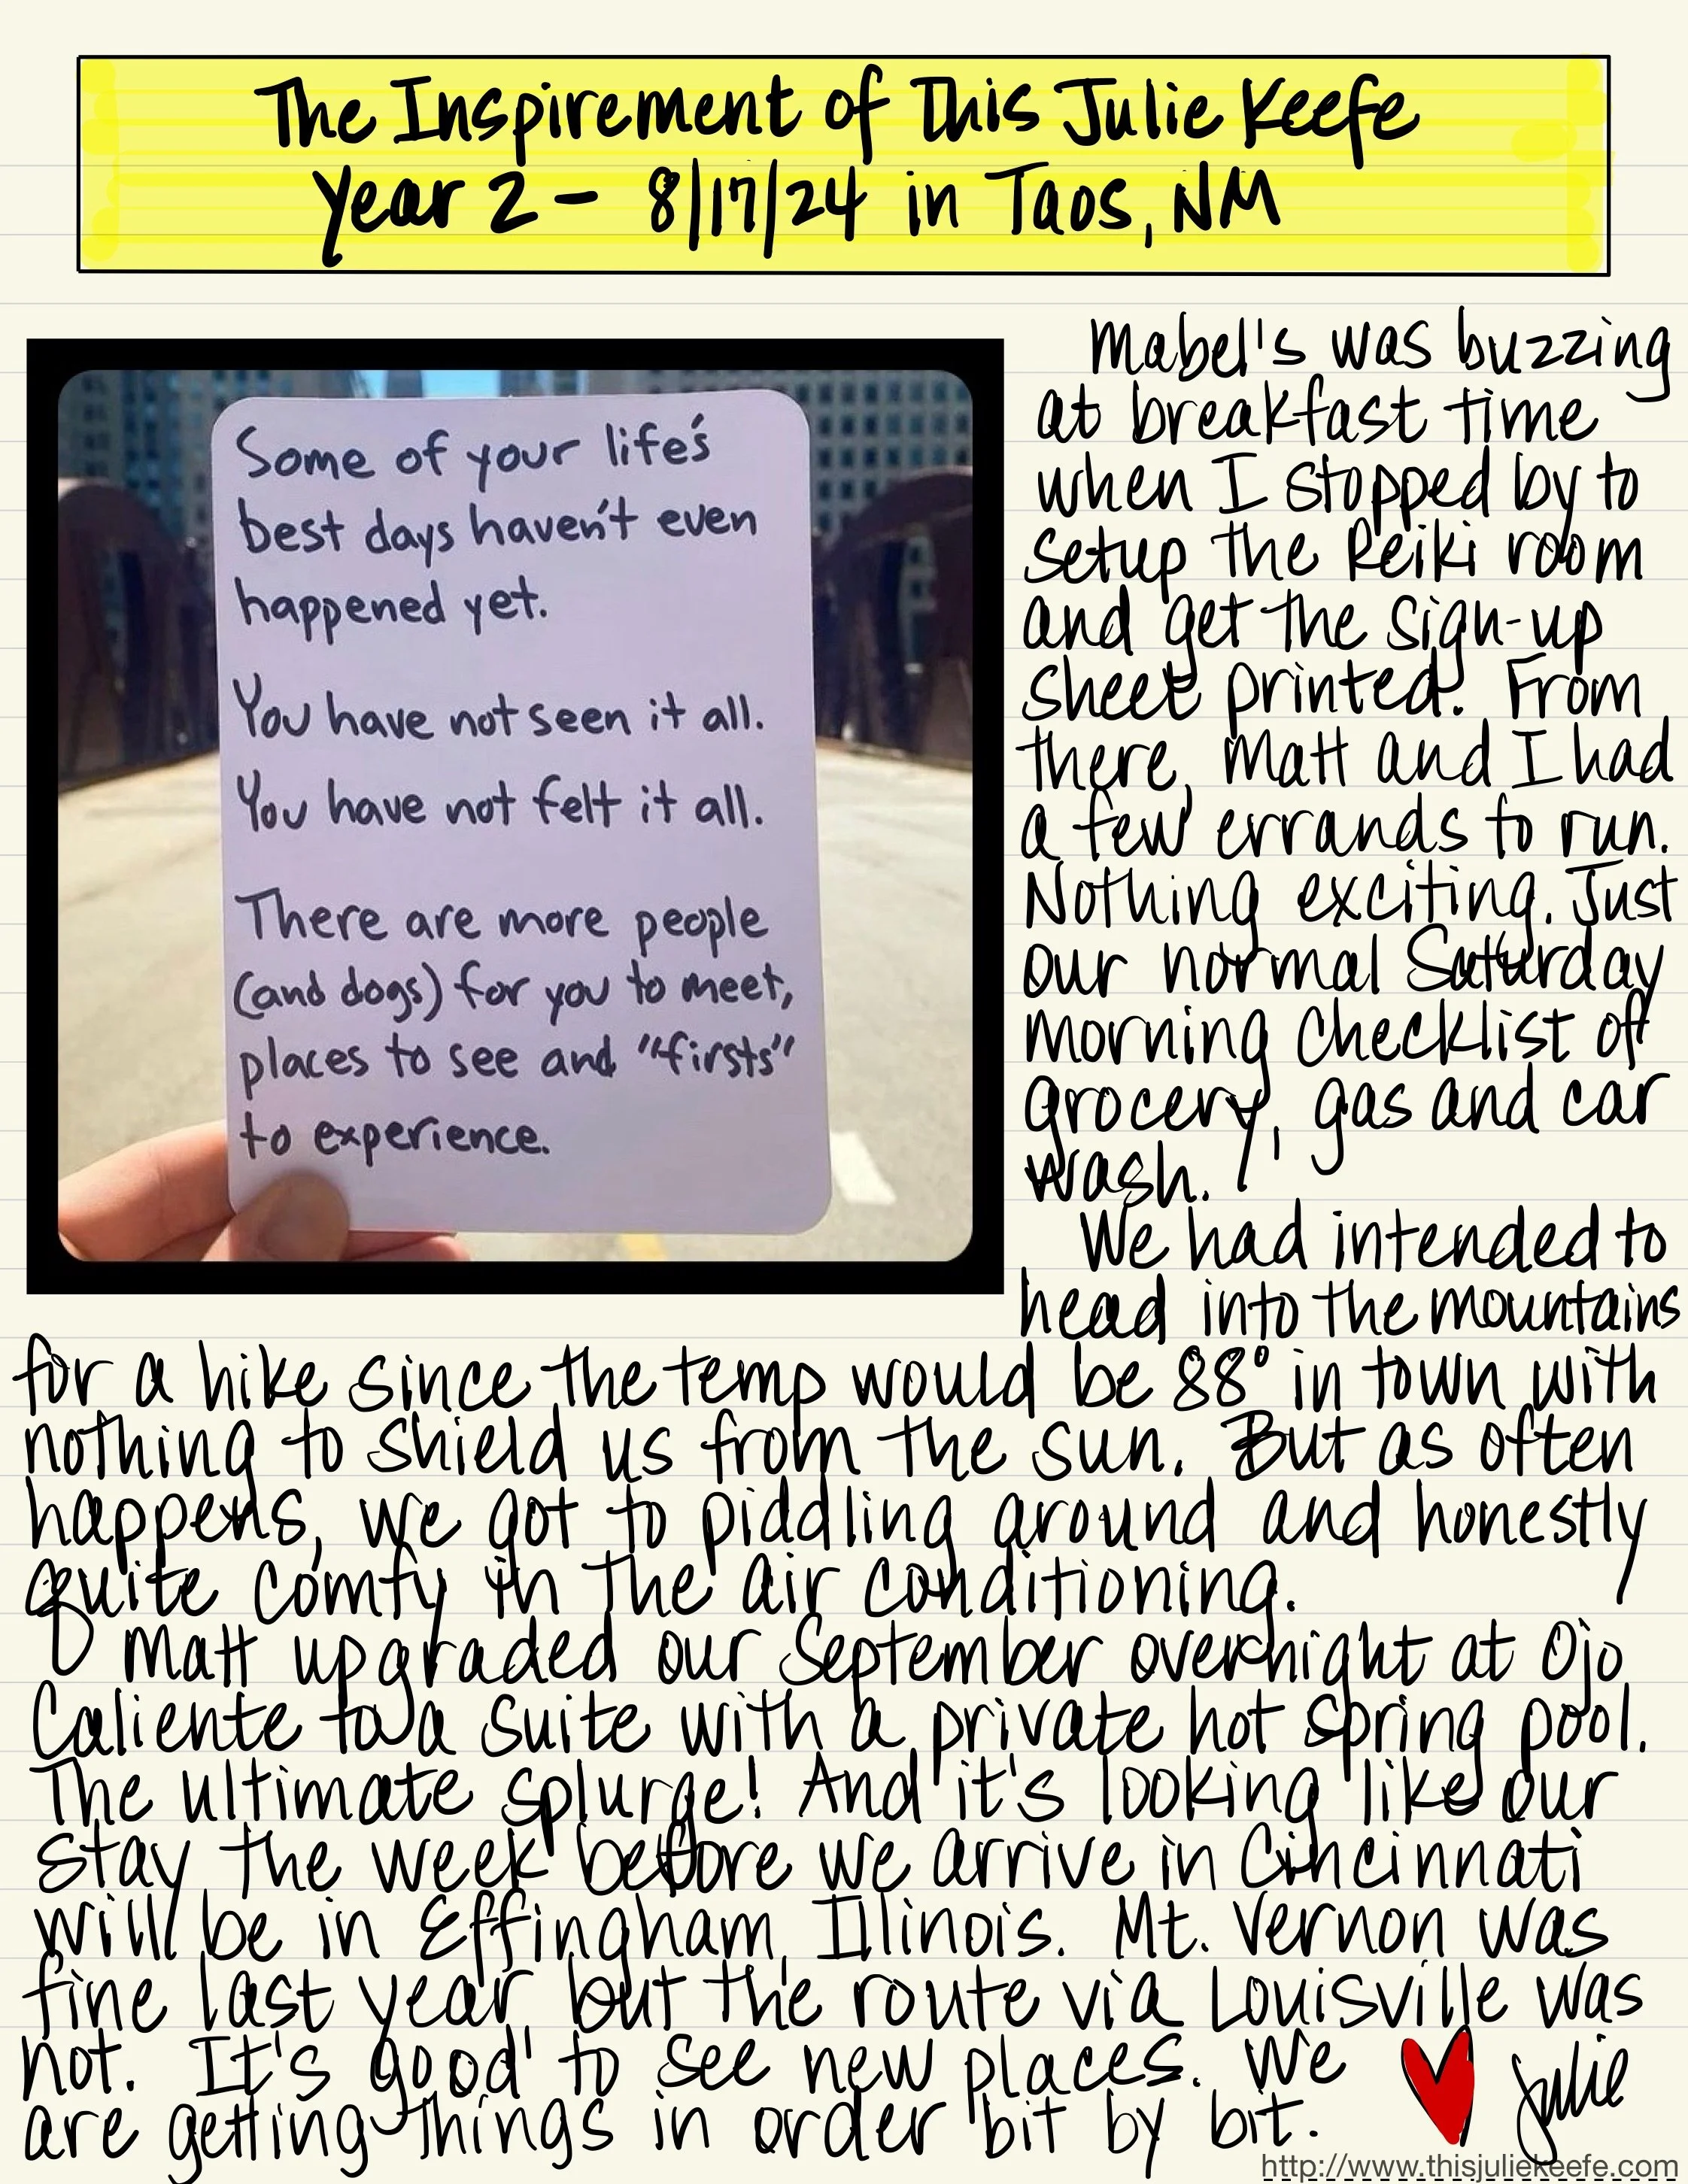 The Inspirement of This Julie Keefe
Year 2 - 8/17/24 in Taos, NM
Some of your life's
best days haven't even
happened yet.
You have not seen it all.
You have not felt it all.
There are more people
(and dogs) for you to meet,
places to see and "firsts"
to experience.
Mabel's was buzzing
at breakfast time
when I stopped by to
setup the Reiki room
and get the sign-up
sheet printed. From
there, Matt and I had
a few errands to run.
Nothing exciting. Just
our normal Saturday
morning checklist of
grocery, gas and car
wash.
We had intended to
head into the mountains
for a hike since the temp would be 88° in town with
nothing to shield us from the sun. But as often
happens, we got to piddling around and honestly
quite comfy in the air conditioning.
Matt upgraded our September overnight at Ojo
Caliente to a suite with a private hot spring pool.
The ultimate splurge! And it's looking like our
stay the week before we arrive in Cincinnati
will be in Effingham, Illinois. Mt. Vernon was
fine last year, but the route via Louisville was
not. It's good to see new places. We
are getting things in order bit by bit.
Julie
http://www.thisjuliekeefe.com